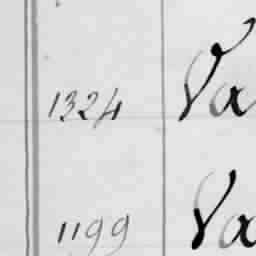 1324 Va
1199 Va